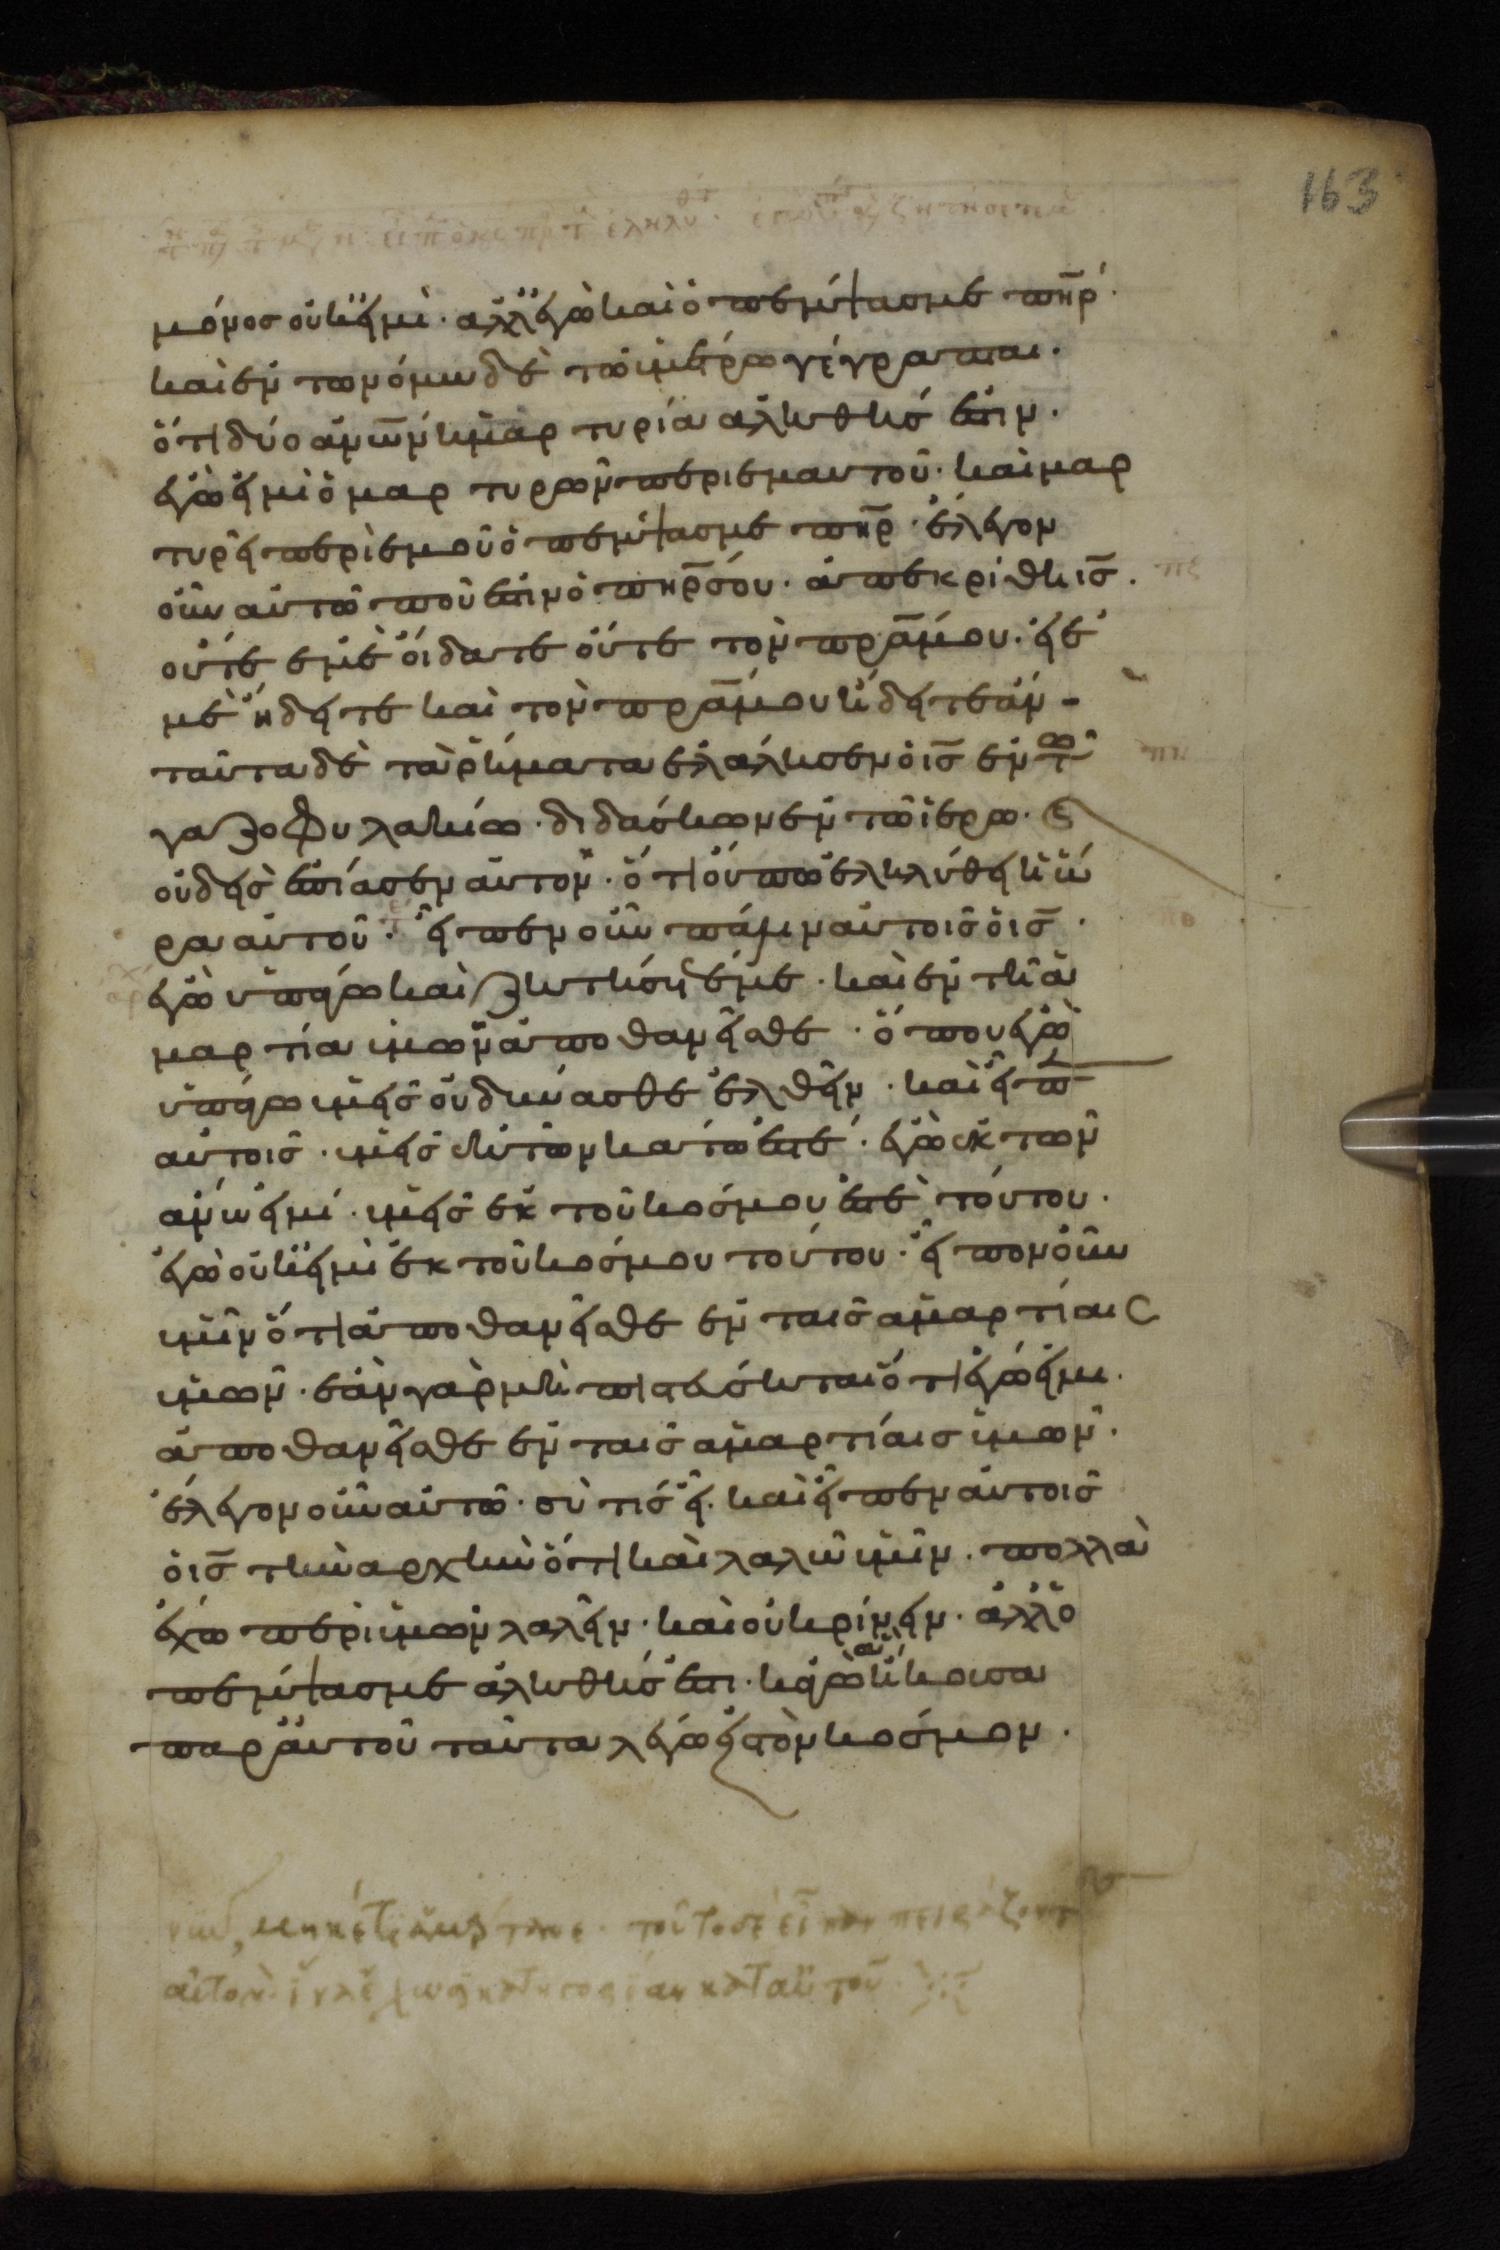 163
μόνος οὐκ εἰμὶ· ἀλλ' ἐγὼ καὶ ὁ πέμψας με πηρ·
καὶ ἐν τῶ νόμω δὲ τῶ ὑμετέρω γέγραπται·
ὅτι δύο ἀνων ἡ μαρτυρία ἀληθής ἐστιν·
ἐγώ εἰμὶ ὁ μαρτυρῶν περὶ ἐμαυτοῦ· καὶ μαρ
τυρεῖ περὶ ἐμοῦ ὁ πέμψας με πηρ· ἔλεγον
οὖν αὐτῶ ποῦ ἐστιν ὁ πηρ σου· ἀπεκρίθη ις·
οὔτε ἐμὲ οἴδατε οὔτε τὸν πρα μου· εἰ ἐ
μὲ ἤδειτε καὶ τὸν πρα μου ἤδειτε ἄν-
ταῦτα δὲ τὰ ῥήματα ἐλάλησεν ὁ ις ἐν τῶ
γαζοφυλακίω· διδάσκων ἐν τῶ ἱερῶ· καὶ
οὐδεὶς ἐπίασεν αὐτὸν· ὅτι οὔπω ἐληλύθει ἡ ὥ
ρα αὐτοῦ· εἶπεν οὖν πάλιν αὐτοῖς ὁ ις·
ἐγὼ ὑπάγω καὶ ζητήσητέ με· καὶ ἐν τῆ ἁ
μαρτία ὑμῶν ἀποθανεῖσθε· ὅπου ἐγὼ
ὑπάγω ὑμεῖς οὐ δύνασθε ἐλθεῖν· καὶ εἶπ
αὐτοῖς· ὑμεῖς ἐκ τῶν κάτω ἐστέ· ἐγὼ ἐκ τῶν
ἄνω εἰμί· ὑμεῖς ἐκ τοῦ κόσμου ἐστὲ τούτου·
ἐγὼ οὐκ εἰμὶ ἐκ τοῦ κόσμου τούτου· εἶπον οὖν
ὑμῖν ὅτι ἀποθανεῖσθε ἐν ταῖς ἁμαρτίαις
ὑμῶν· ἐὰν γὰρ μὴ πιστεύσηται ὅτι ἐγώ εἰμι·
ἀποθανεῖσθε ἐν ταῖς ἁμαρτίαις ὑμῶν·
ἔλεγον οὖν αὐτῶ· σὺ τίς εἶ· καὶ εἶπεν αὐτοῖς
ὁ ις τὴν ἀρχὴν ὅτι καὶ λαλῶ ὑμῖν· πολλὰ
ἔχω περὶ ὑμῶν λαλεῖν· καὶ οὐ κρίνειν· ἀλλ' ὁ
πέμψας με ἀληθής ἐστι· κἀγὼ ἃ ἤκουσα
παρ' αὐτοῦ ταῦτα λέγω εἰς τὸν κόσμον·
αὐτὸν ἵνα ἔχωσι κατηγορίαν κατ' αὐτοῦ